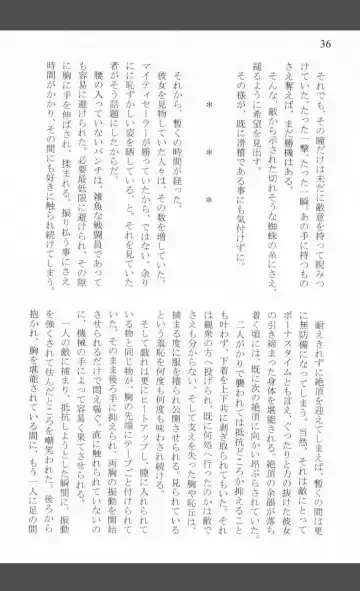 36
それでも、その瞳だけは未だに敵意を持って睨みつ
けていた。たった一撃、たった一瞬。あの手に持つもの
さえ奪えば、まだ勝機はある。
そんな、敵から示された切れそうな蜘蛛の糸にさえ、
縋るように希望を見出す。
その様が、既に滑稽である事にも気付けずに。
* * *
それから、暫くの時間が経った。
彼女を見物していた人々は、その数を増していた。
マイティセーラーが勝っていたから、ではない。余り
にに恥ずかしい姿を晒していると、それを見ていた
者がそう話題にしたからだ。
腰の入っていないパンチは、雑魚な戦闘員であって
も容易に避けられた。必要最低限に避けられ、その隙
に胸に手を伸ばされ、揉まれる。振り払う事にさえ
時間がかかり、その間にも好きに触られ続けてしまう。
耐えきれずに絶頂を迎えてしまえば、暫くの間は更
に無防備になってしまう。当然、それは敵にとって
ボーナスタイムとも言え、ぐったりと力の抜けた彼女
の引き締まった身体を堪能される。絶頂の余韻が落ち
着く頃には、既に次の絶頂に向かい昂ぶらされていた。
二人がかりで襲われては抵抗どころか抑えること
も叶わず、下着を上下共に剥ぎ取られてもいた。それ
は観衆の方へ投げられ、既に何処へ行ったのかは敵で
さえも分からない。そして支えを失った胸や恥丘は、
捕まる度に服を捲られ公開させられる。見られている
という羞恥を何度も何度も味わされ続ける。
そして戯れは更にヒートアップし、膣に入れられて
いる物と同じ物が、胸の先端にテープにて付けられて
いた。そのまま後ろ手に抑えられ、両胸の振動を開始
させられるだけで悶え喘ぐ。直に触れられていないの
に、機械の手によって容易く果てさせられる。
一人の敵に捕まり、抵抗しようとした瞬間に、振動
を強くされて怯んだところを嘲笑われた。後ろから
抱かれ、胸を堪能されている間に、もう一人に足の間